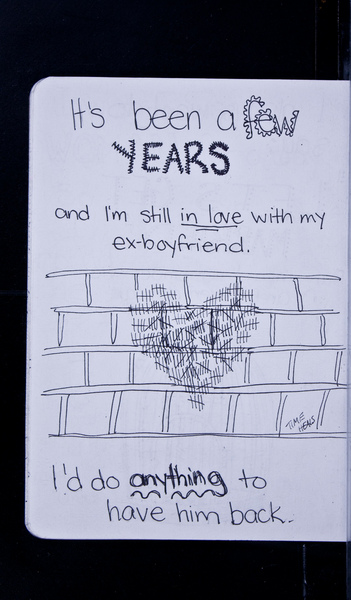 It's been a few
YEARS
and I'm still in love with my
ex-boyfriend.
TIME
HEALS
I'd do anything to
have him back.